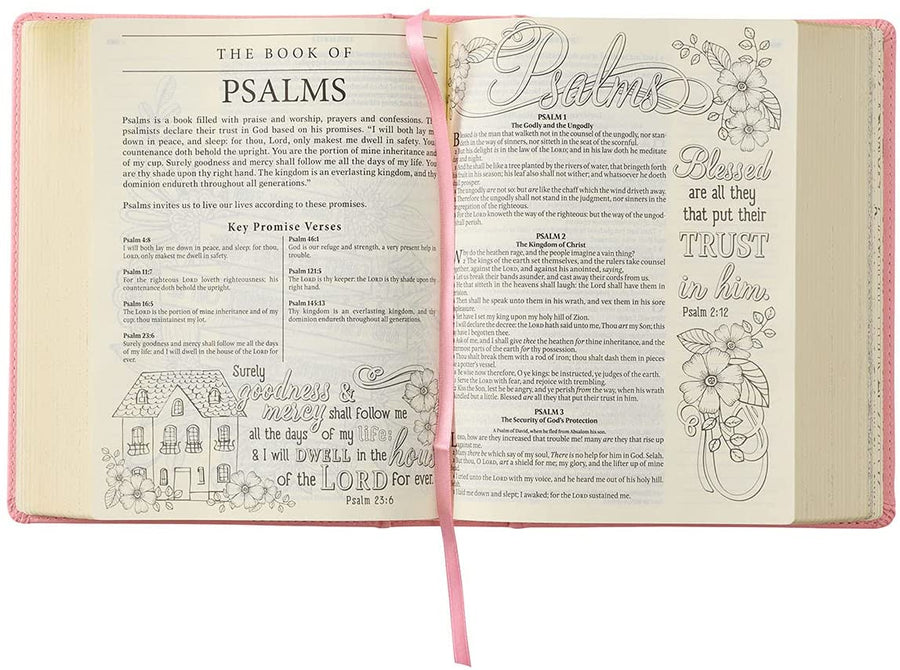 THE BOOK OF
PSALMS
Psalms is a book filled with praise and worship, prayers and confessions.
psalmists declare their trust in God based on his promises. “I will both lay
down in peace, and sleep: for thou, Lord, only makest me dwell in safety.
countenance doth behold the upright. You are the portion of mine inheritance
of my cup. Surely goodness and mercy shall follow me all the days of my life.
are thy shade upon thy right hand. The kingdom is an everlasting kingdom, and
dominion endureth throughout all generations.”
Psalms invites us to live our lives according to these promises.
Key Promise Verses
Psalm 4:8
I will both lay me down in peace, and sleep: for thou,
LORD, only makest me dwell in safety.
Psalm 11:7
For the righteous LORD loveth righteousness; his
countenance doth behold the upright.
Psalm 16:5
The LORD is the portion of mine inheritance and of my
cup: thou maintainest my lot.
Psalm 23:6
Surely goodness and mercy shall follow me all the days
of my life: and I will dwell in the house of the LORD for
ever.
Psalm 46:1
God is our refuge and strength, a very present help in
trouble.
Psalm 121:5
The LORD is thy keeper: the LORD is thy shade upon thy
right hand.
Psalm 145:13
Thy kingdom is an everlasting kingdom, and thy
dominion endureth throughout all generations.
Surely
goodness &
mercy shall follow me
all the days of my life:
& I will DWELL in the
of the LORD for ever.
Psalm 23:6
Psalms
PSALM 1
The Godly and the Ungodly
Blessed is the man that walketh not in the counsel of the ungodly, nor stan-
deth in the way of sinners, nor sitteth in the seat of the scornful.
But his delight is in the law of the LORD; and in his law doth he meditate
day and night.
And he shall be like a tree planted by the rivers of water, that bringeth forth
fruit in his season; his leaf also shall not wither; and whatsoever he doeth
shall prosper.
The ungodly are not so: but are like the chaff which the wind driveth away.
Therefore the ungodly shall not stand in the judgment, nor sinners in the
congregation of the righteous.
For the LORD knoweth the way of the righteous: but the way of the ungod-
shall perish.
PSALM 2
The Kingdom of Christ
Why do the heathen rage, and the people imagine a vain thing?
2 The kings of the earth set themselves, and the rulers take counsel
together, against the LORD, and against his anointed, saying,
Let us break their bands asunder, and cast away their cords from us.
He that sitteth in the heavens shall laugh: the Lord shall have them in
derision.
Then shall he speak unto them in his wrath, and vex them in his sore
displeasure.
Yet have I set my king upon my holy hill of Zion.
I will declare the decree: the LORD hath said unto me, Thou art my Son; this
day have I begotten thee.
Ask of me, and I shall give thee the heathen for thine inheritance, and the
uttermost parts of the earth for thy possession.
Thou shalt break them with a rod of iron; thou shalt dash them in pieces
like a potter's vessel.
Be wise now therefore, O ye kings: be instructed, ye judges of the earth.
Serve the LORD with fear, and rejoice with trembling.
Kiss the Son, lest he be angry, and ye perish from the way, when his wrath
kindled but a little. Blessed are all they that put their trust in him.
PSALM 3
The Security of God's Protection
A Psalm of David, when he fled from Absalom his son.
LORD, how are they increased that trouble me! many are they that rise up
against me.
Many there be which say of my soul, There is no help for him in God. Selah.
But thou, O LORD, art a shield for me; my glory, and the lifter up of mine
head.
I cried unto the LORD with my voice, and he heard me out of his holy hill.
Selah.
I laid me down and slept; I awaked; for the LORD sustained me.
Blessed
are all they
that put their
TRUST
in him.
Psalm 2:12